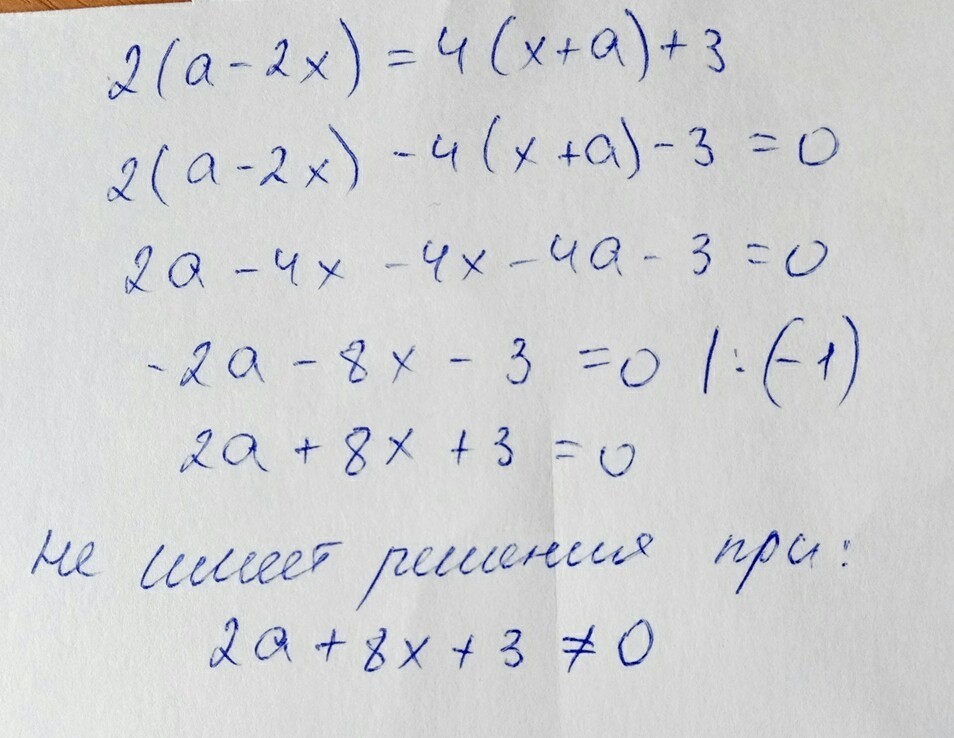 2(a-2x) = 4(x+a)+3
2(a-2x) -4(x+a)-3 = 0
2a -4x -4x -4a - 3 = 0
-2a - 8x - 3 = 0 |:(-1)
2a + 8x + 3 = 0
не имеет решения при:
2a + 8x + 3 ≠ 0